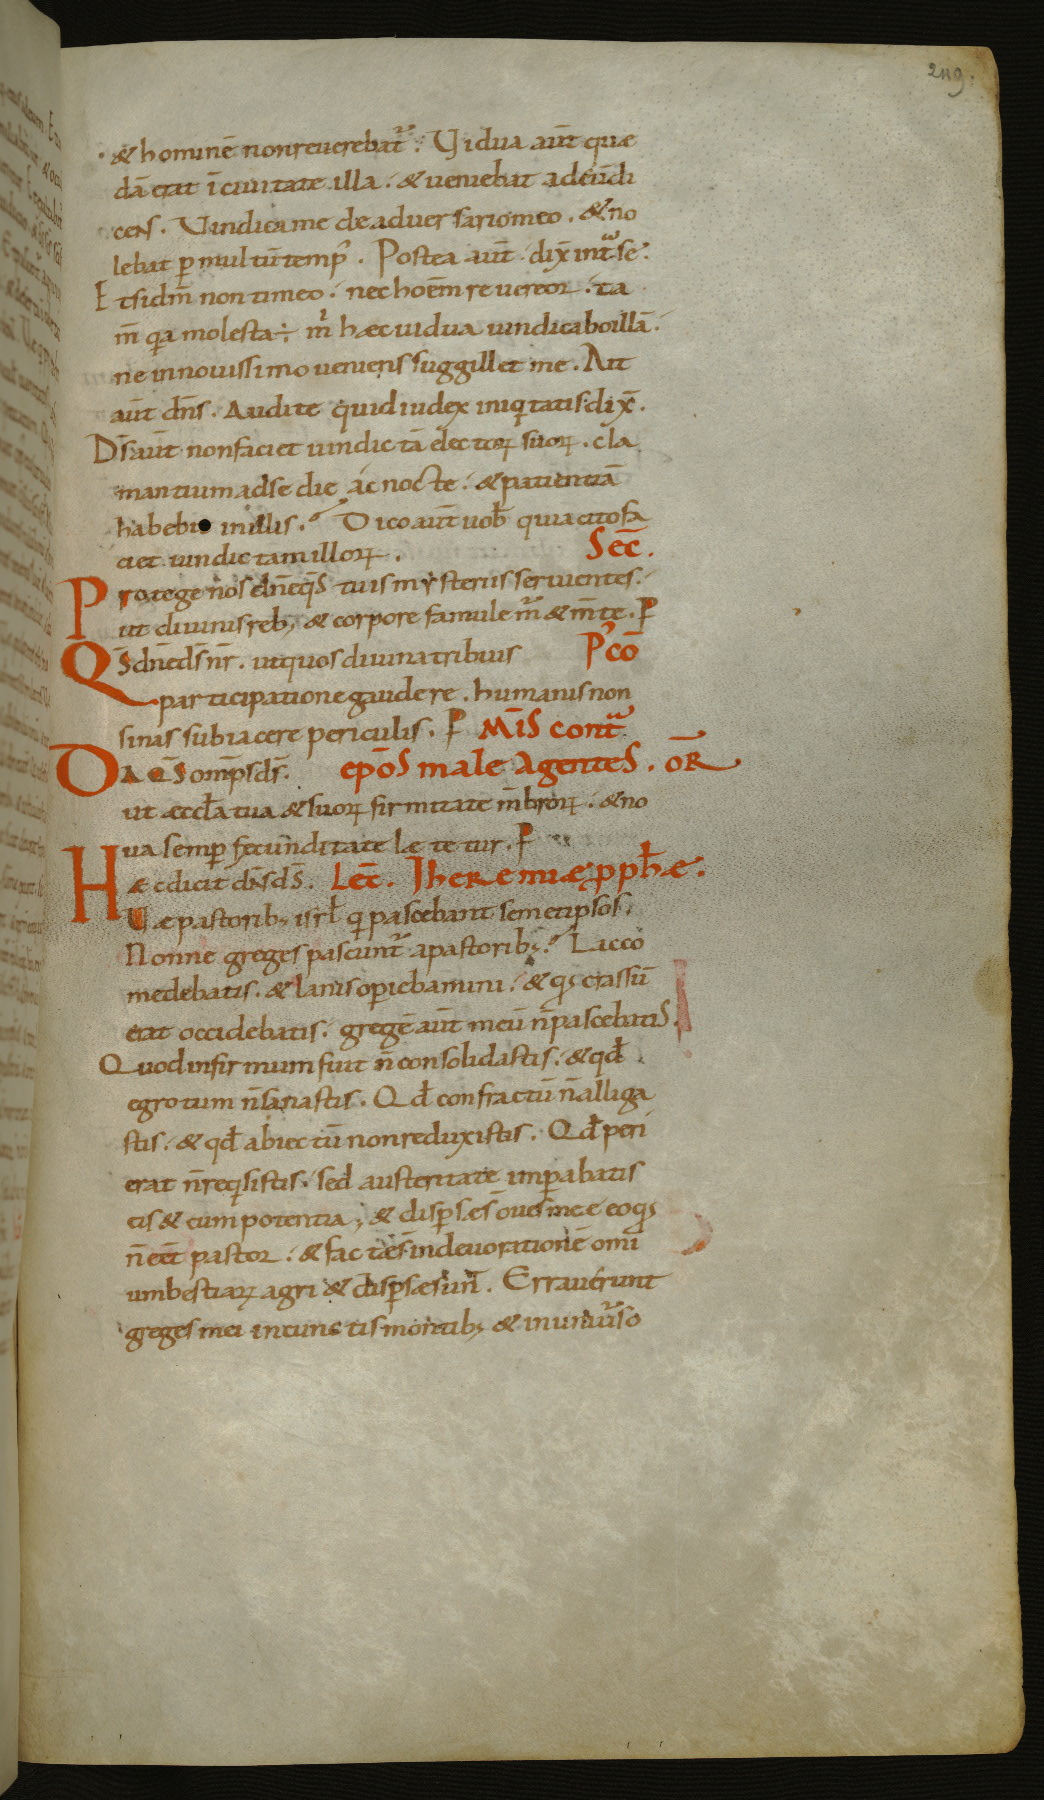 249.
& hominē nonreuerebat᷑. Uidua aūt quae
dā erat ī ciuitate illa. & ueniebat adeū di
cens. Uindica me de aduersario meo. & no
lebat p̄ multū temp᷒. Postea aūt dix̄ int᷑ se.
Et si dm̄ non timeo. nec hoēm reuereor. ta
m̄ qa molesta ÷ m̄ haec uidua uindicabo illā.
ne in nouissimo ueniens suggillet me. Ait
aūt dn̄s. Audite quid iudex iniqitatis dix̄.
Ds̄ aūt non faciet uindictā electoꝝ suoꝝ. cla
mantium ad se die ac nocte. & patientiā
habebit in illis. Dico aūt uob̄ quia cito fa
ciet uindictam illoꝝ. Sec̄.
Protege nos dn̄e qs̄ tuis mysteriis seruientes.
ut diuinis reb; & corpore famulem᷑ & mn̄te. P
Qs̄ dn̄e ds̄ nr̄. ut quos diuina tribuis P᷒cō
participatione gaudere. humanis non
sinas subiacere periculis. P Mīs cont᷑
Da qs̄ omp̄s ds̄. ep̄os male agentes. OR̄
ut aeccl̄a tua & suoꝝ firmitate mb̄roꝝ. & no
ua semp̄ fecunditate laetetur. P
Haec dicit dn̄s ds̄. Lec̄. Iheremiae pph̄ae.
Uae pastorib; isrl̄ q pascebant semetipsos.
Nonne greges pascunt᷑ a pastorib;. Lac co
medebatis. & lanis operiebamini. & qꝫ crassū
erat occidebatis. gregē aūt meū n̄ pascebatis.
Quod infirmum fuit n̄ consolidastis. & qd̄
egrotum n̄ sanastis. Qd̄ confractū n̄ alliga
stis. & qd̄ abiectū non reduxistis. Qd̄ peri
erat n̄ reqsistis. sed austeritate imp̄abatis
eis & cum potentia, & disp̄sae s̄ oues meae eo qꝫ
n̄ eēt pastor. & factae s̄ in deuorationē omī
um bestiaꝝ agri & disp̄sae sun̄. Errauerunt
greges mei in cunctis montib; & in uniu᷑so